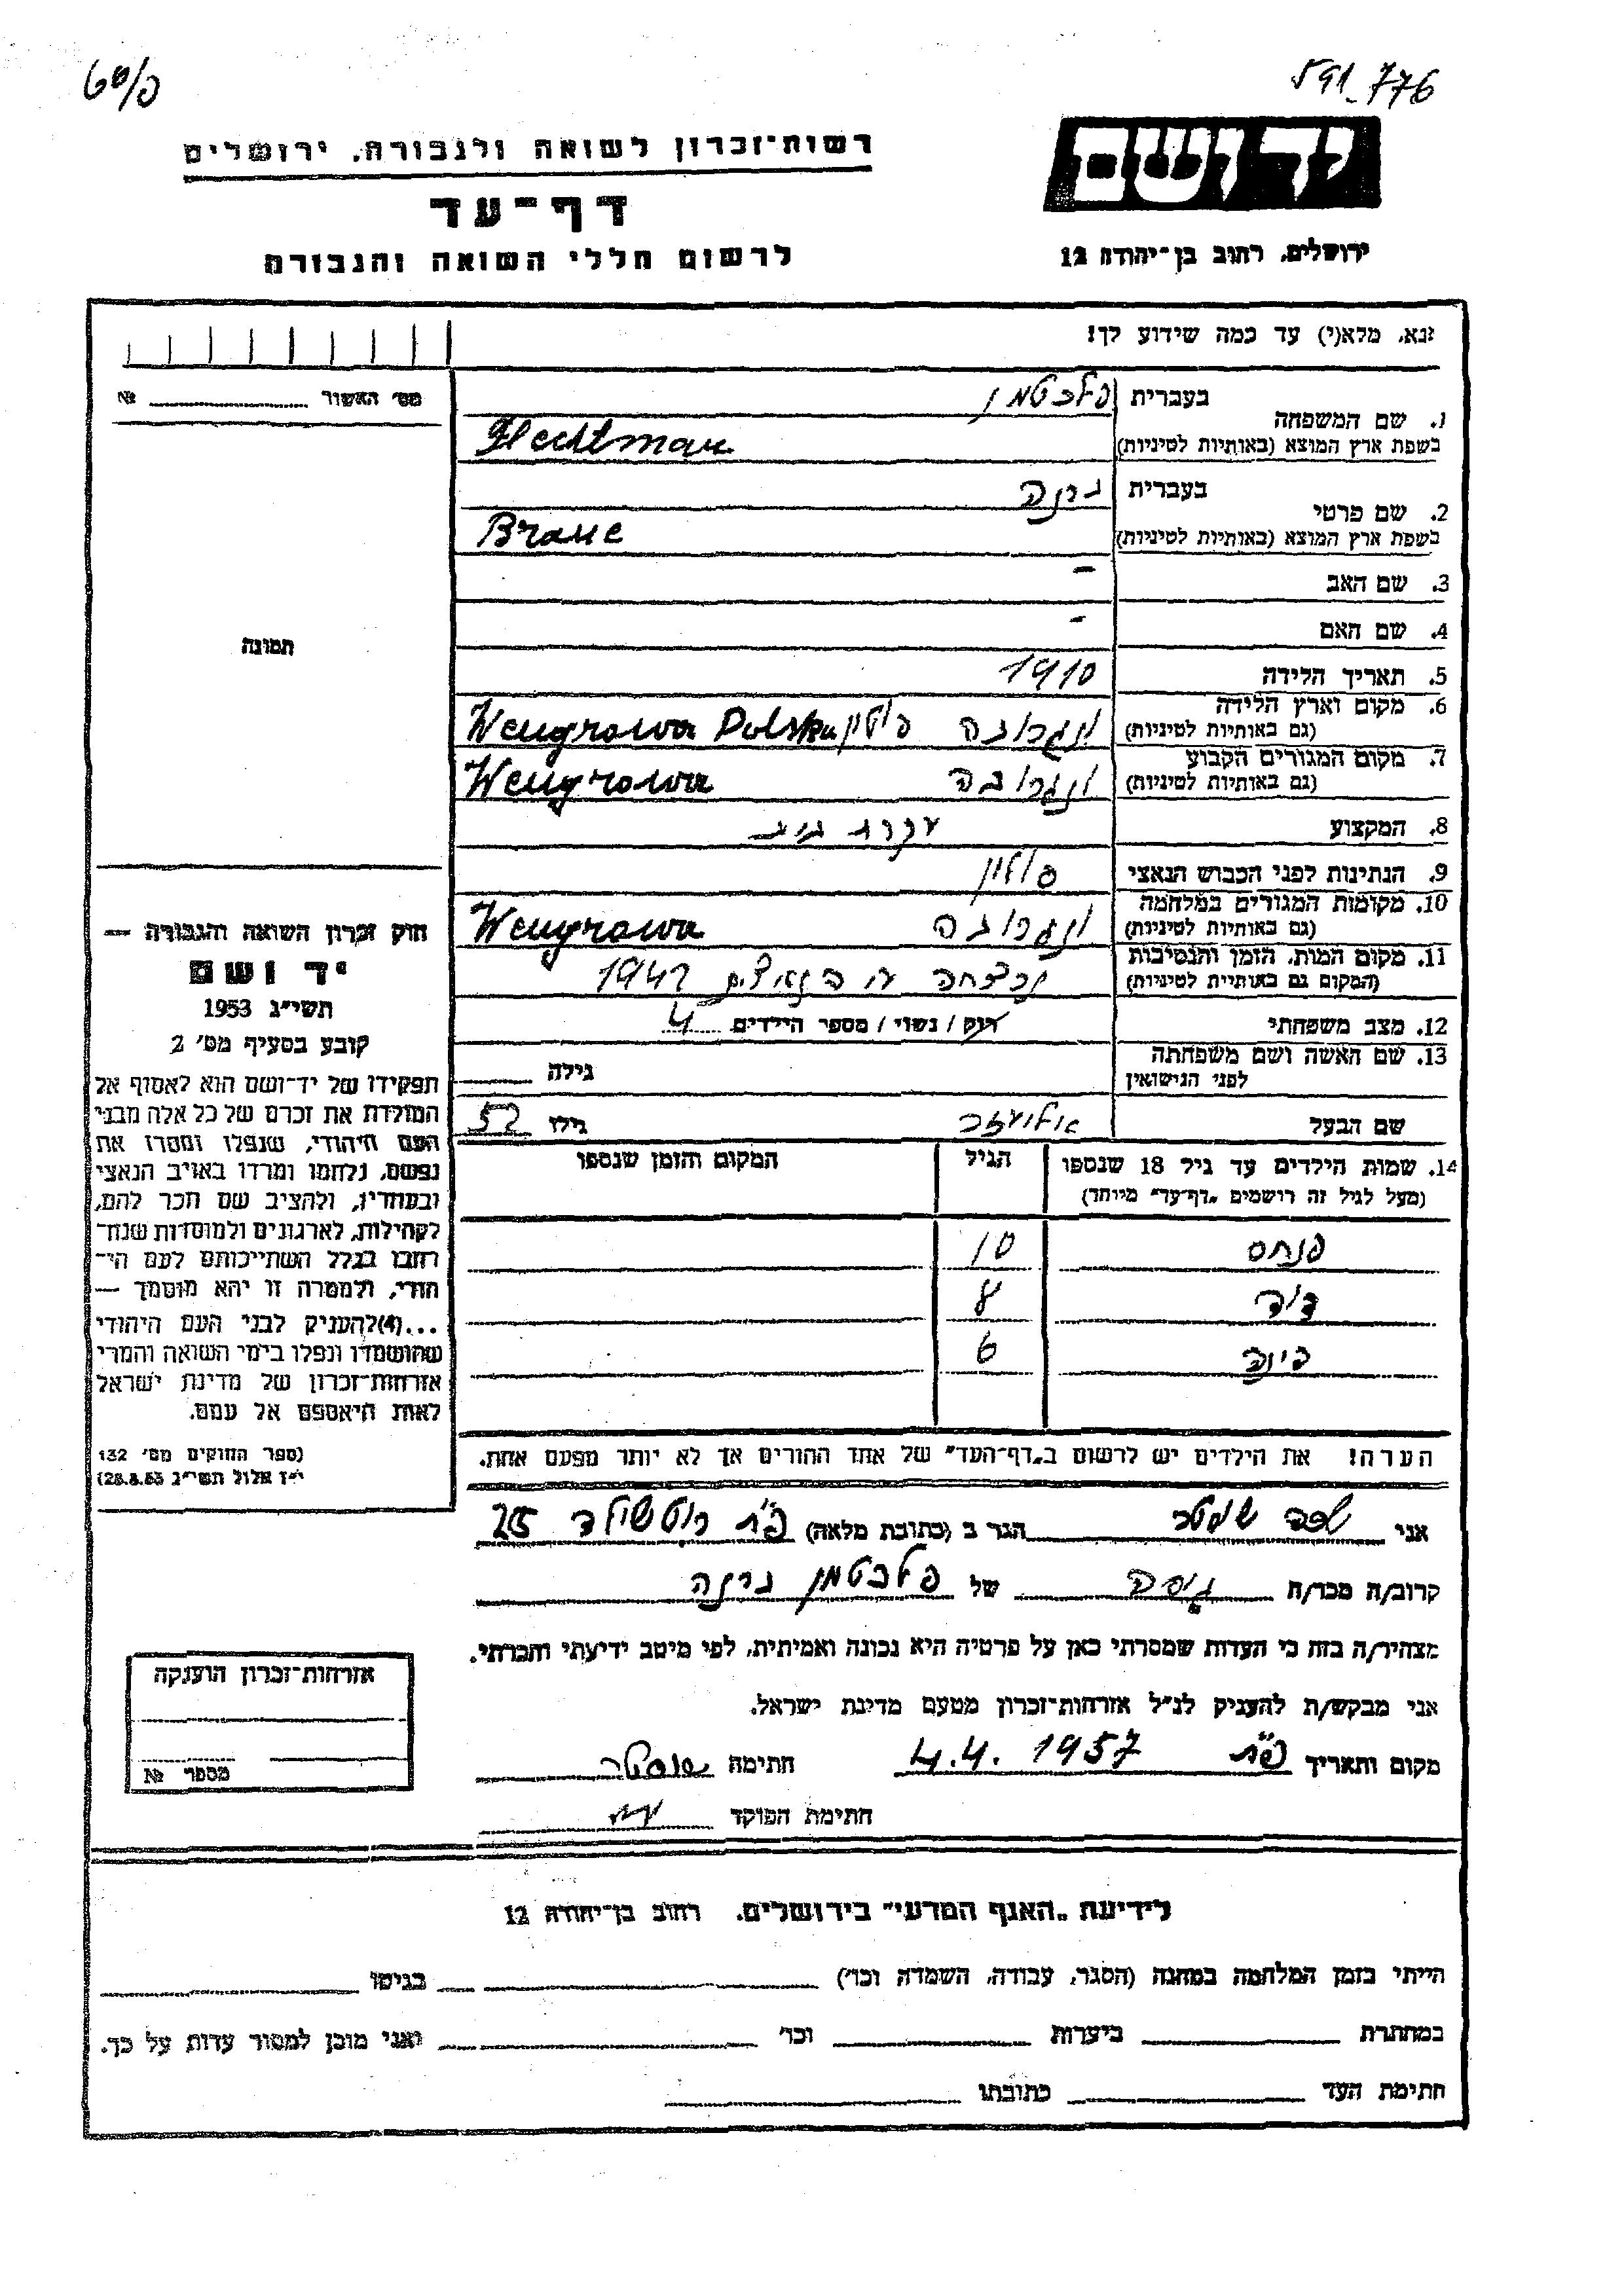 591_776
רשות־זכרון לשואה ולגבורה, ירושלים
יד ושם
דף־עד
לרשום חללי השואה והגבורה
ירושלים, רחוב בן־יהודה 12
נא, מלא(י) עד כמה שידוע לך!
מס׳ האשור №
1. שם המשפחה
בעברית פלכטמן
בשפת ארץ המוצא (באותיות לטיניות) Flechtman
2. שם פרטי
בעברית ברנה
בשפת ארץ המוצא (באותיות לטיניות) Brane
3. שם האב –
4. שם האם –
תמונה
5. תאריך הלידה 1910
6. מקום וארץ הלידה
(גם באותיות לטיניות) ונגרובה פולין Wengrowa Polska
7. מקום המגורים הקבוע
(גם באותיות לטיניות) ונגרובה Wengrowa
8. המקצוע עקרת בית
9. הנתינות לפני הכבוש הנאצי פולין
10. מקומות המגורים במלחמה
(גם באותיות לטיניות) ונגרובה Wengrowa
11. מקום המות, הזמן והנסיבות
(המקום גם באותיות לטיניות) נרצחה ע הנאצים 1942
12. מצב משפחתי רווק / נשוי / מספר הילדים 4
13. שם האשה ושם משפחתה
לפני הנישואין גילה
שם הבעל אליעזר גילו 52
14. שמות הילדים עד גיל 18 שנספו הגיל המקום והזמן שנספו
(מעל לגיל זה רושמים „דף־עד” מיוחד)
פנחס 10
דוד 8
6
הערה! את הילדים יש לרשום ב„דף־העד” של אחד ההורים אך לא יותר מפעם אחת.
חוק זכרון השואה והגבורה —
יד ושם
תשי״ג 1953
קובע בסעיף מס׳ 2
תפקידו של יד־ושם הוא לאסוף אל
המולדת את זכרם של כל אלה מבני
העם היהודי, שנפלו ומסרו את
נפשם, נלחמו ומרדו באויב הנאצי
ובעוזריו, ולהציב שם וזכר להם,
לקהילות, לארגונים ולמוסדות שנח־
רבו בגלל השתייכותם לעם הי־
הודי, ולמטרה זו יהא מוסמך —
...(4)להעניק לבני העם היהודי
שהושמדו ונפלו בימי השואה והמרי
אזרחות־זכרון של מדינת ישראל
לאות היאספם אל עמם.
(ספר החוקים מס׳ 132
י״ז אלול תשי״ג 28.8.53)
אני הגר ב (כתובת מלאה) פ״ת רוטשילד 25
קרוב/ה מכר/ה גיסה של פלכטמן ברנה
מצהיר/ה בזה כי העדות שמסרתי כאן על פרטיה היא נכונה ואמיתית, לפי מיטב ידיעתי והכרתי.
אני מבקש/ת להעניק לנ״ל אזרחות־זכרון מטעם מדינת ישראל.
מקום ותאריך פ״ת 4.4.1957 חתימה
חתימת הפוקד
אזרחות־זכרון הוענקה
מספר №
לידיעת „האגף המדעי” בירושלים, רחוב בן־יהודה 12
הייתי בזמן המלחמה במחנה (הסגר, עבודה, השמדה וכו׳) בגיטו
במחתרת ביערות וכו׳ ואני מוכן למסור עדות על כך.
חתימת העד כתובתו